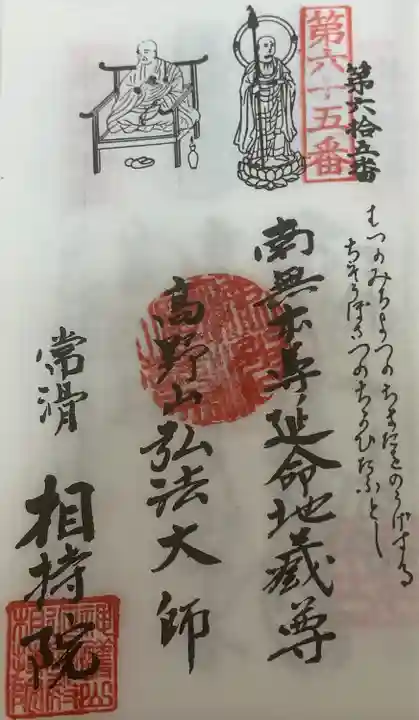 第六拾五番
第六十五番
むつのみちよつのちまたをのうげする
ちぞうぼさつのちかひたふとし
南無本尊延命地蔵尊
高野山弘法大師
常滑
相持院